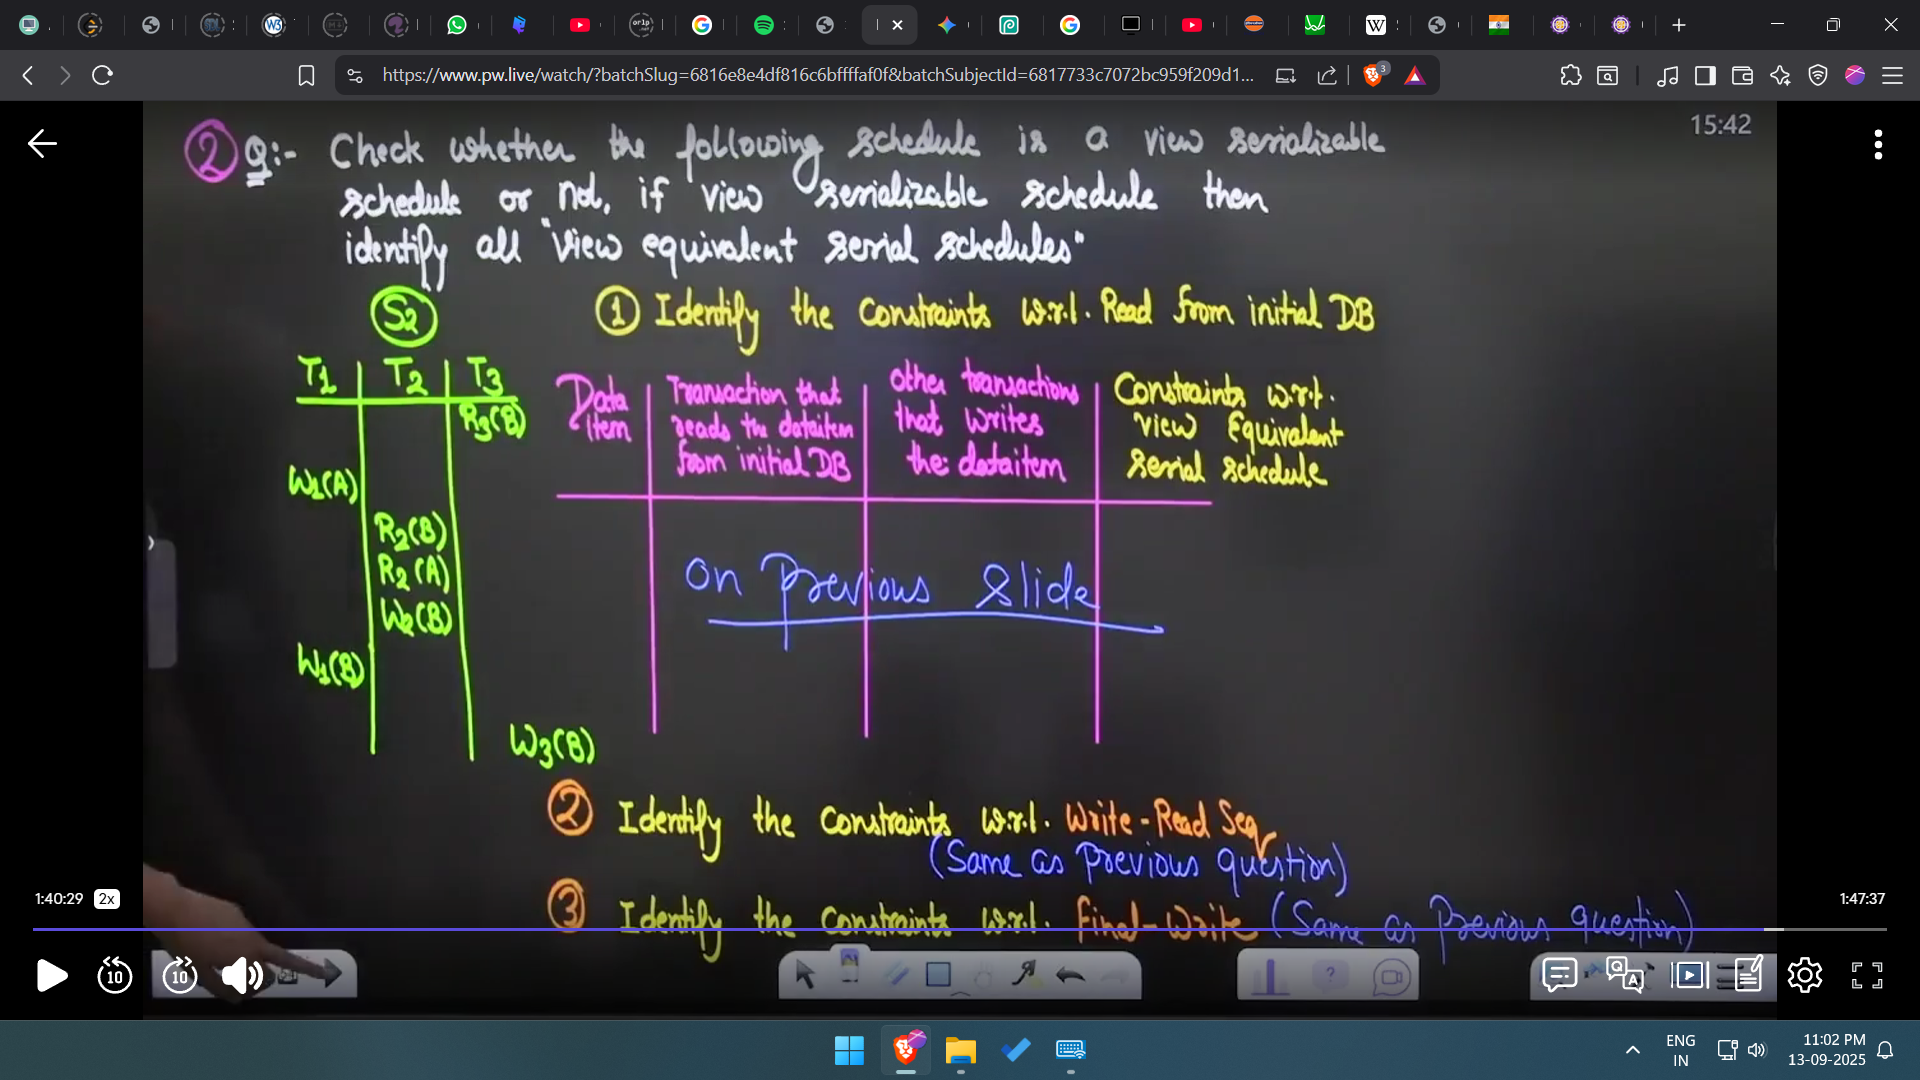 https://www.pw.live/watch/?batchSlug=6816e8e4df816c6bffffaf0f&batchSubjectId=6817733c7072bc959f209d1...
3
15:42
② Q:- Check whether the following schedule is a view serializable
schedule or not, if view serializable schedule then
identify all "view equivalent serial schedules"
S2
① Identify the constraints w.r.t. Read from initial DB
T1 T2 T3
R3(B)
W1(A)
R2(B)
R2(A)
W2(B)
W1(B)
W3(B)
Data item
Transaction that reads the dataitem from initial DB
other transactions that writes the dataitem
Constraints w.r.t. view Equivalent serial schedule
on previous slide
② Identify the constraints w.r.t. Write-Read Seq
(Same as previous question)
③ Identify the constraints w.r.t. Final-Write (Same as previous question)
1:40:29 2x
1:47:37
10 10
ENG
IN
11:02 PM
13-09-2025